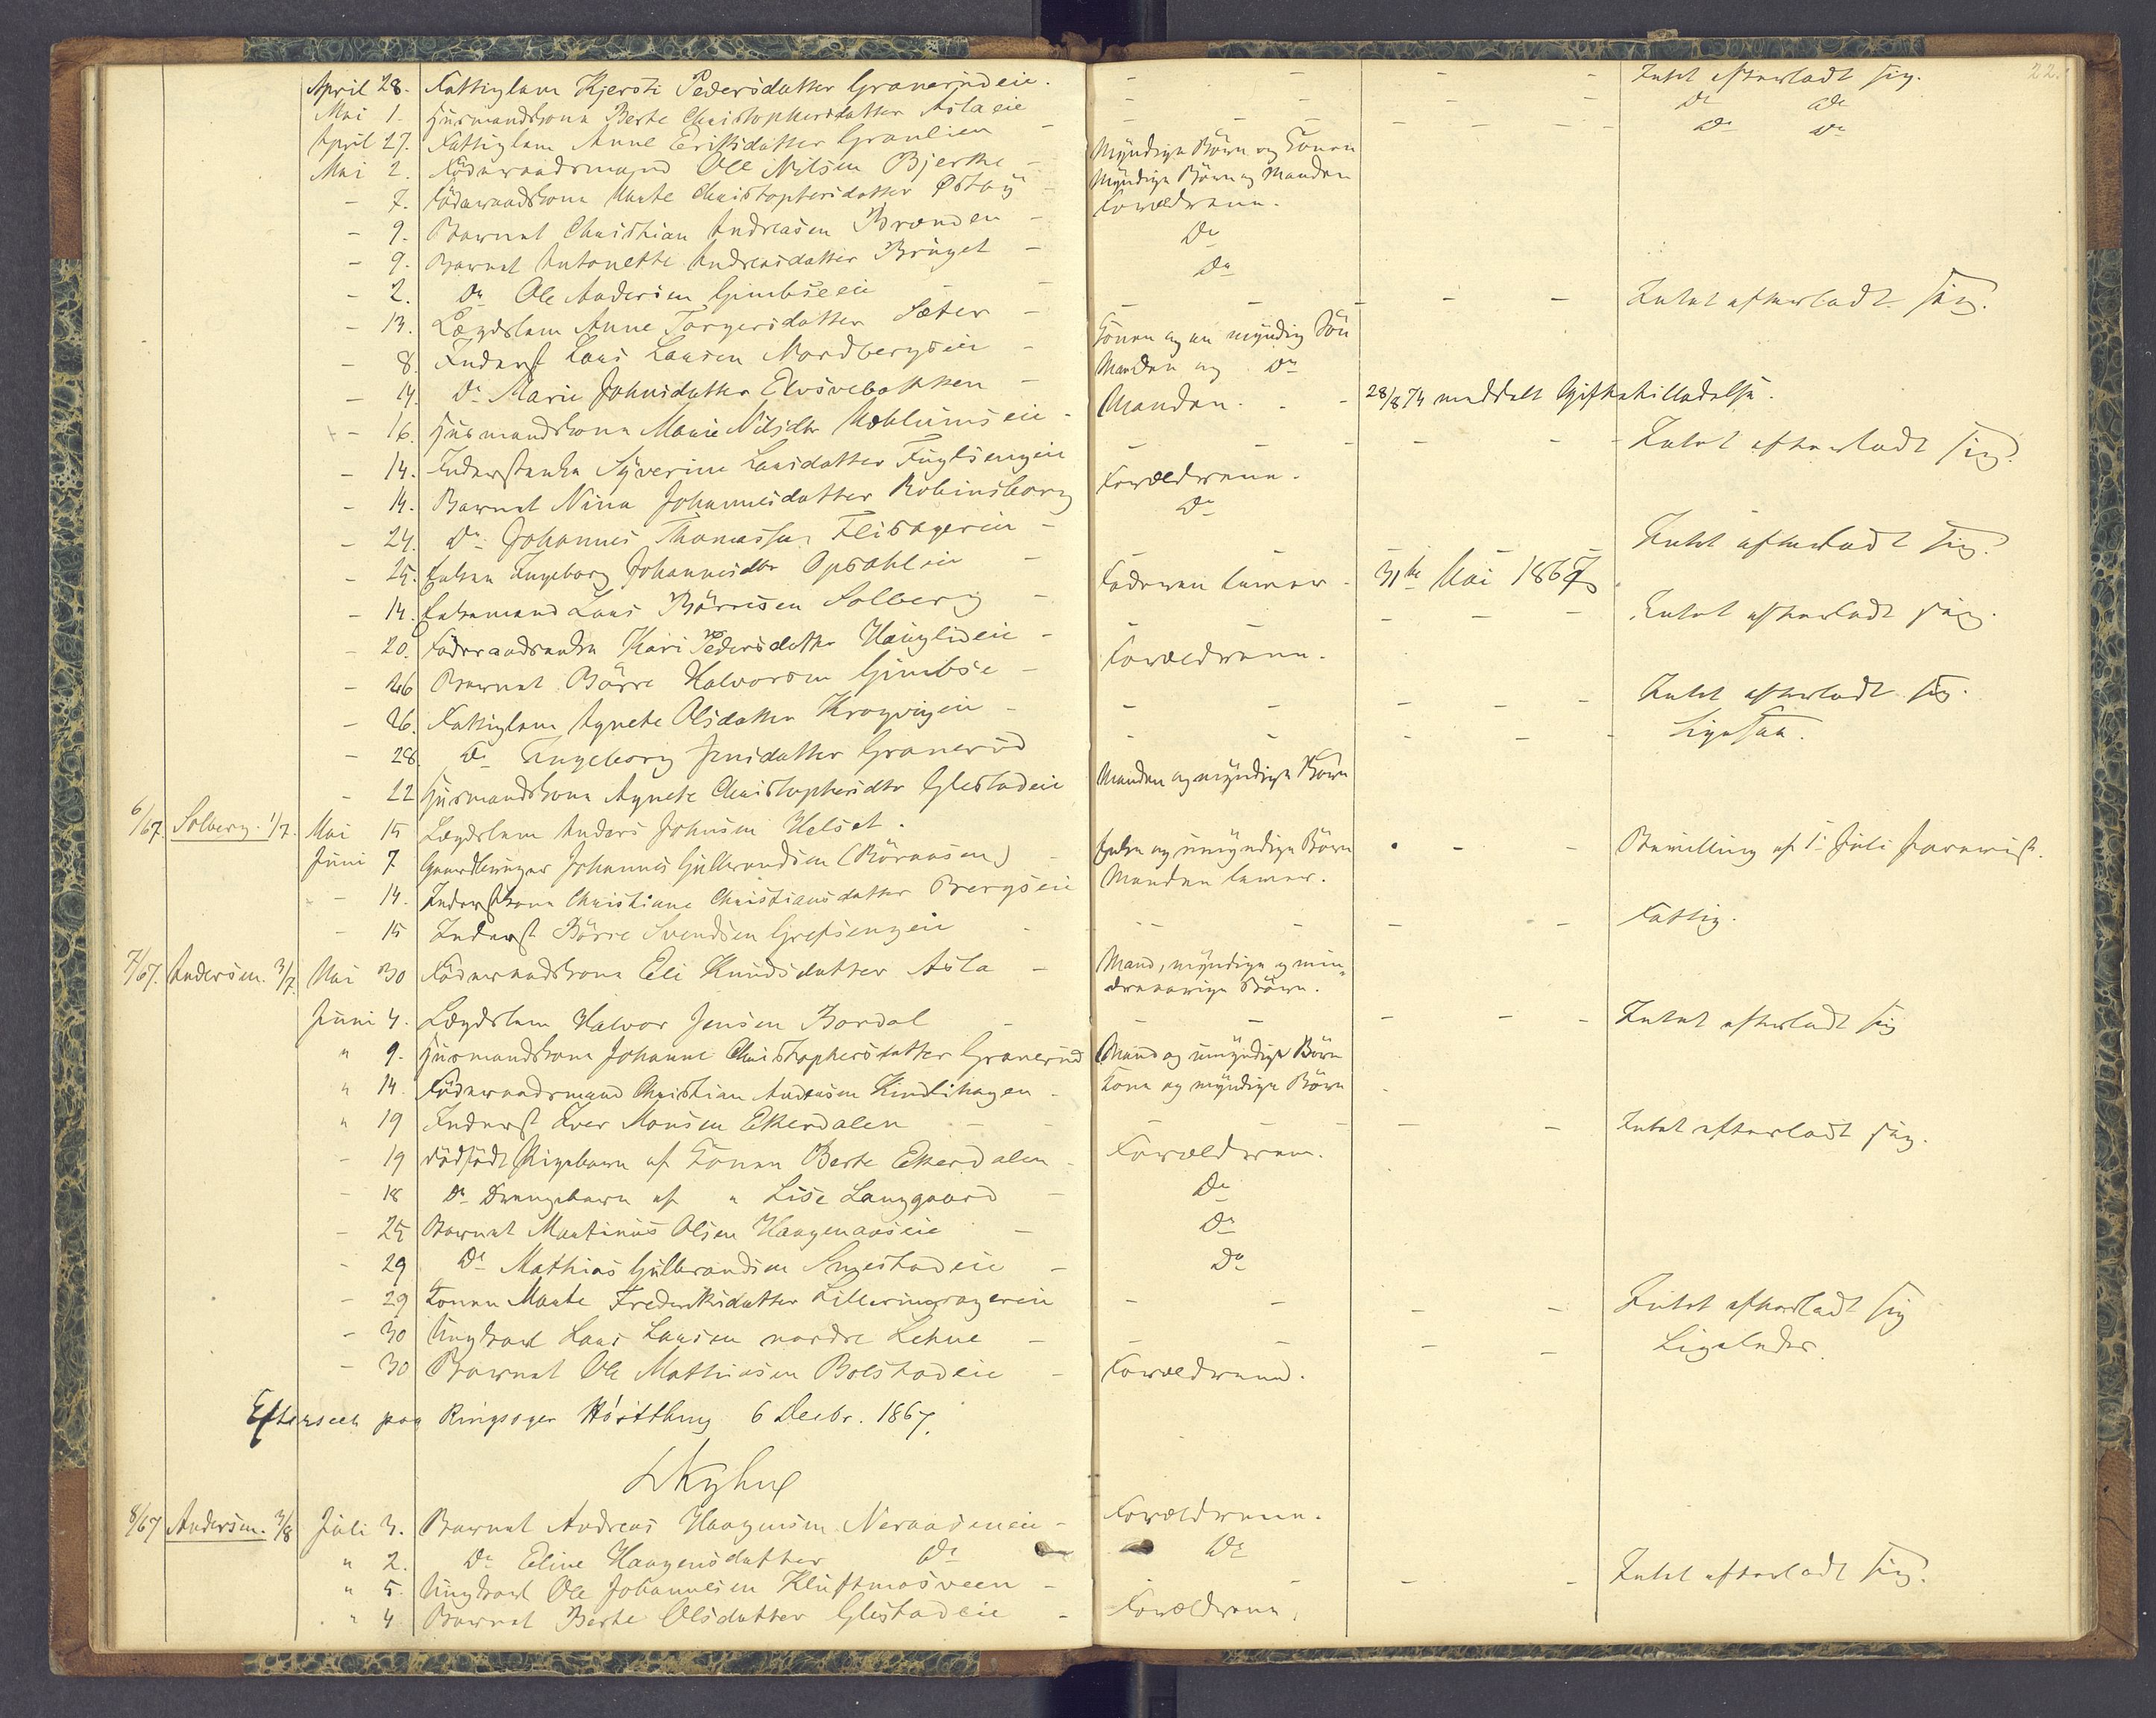 22.
April 28. Fattiglem Kjersti Pedersdatter Granerudeie. - - - - Intet efterladt sig.
Mai 1. Husmandskone Berte Christophersdatter Aslaeie - - - Do Do
April 27. Fattiglem Anne Eriksdatter Granlien - - - - - - Do Do
Mai 2. Föderaadsmand Ole Nilsen Bjerke - Myndige Börn og Konen
- 7. Föderaadskone Marte Christophersdatter Østby - Myndige Börn og Manden
- 9. Barnet Christian Andreasen Brænden - Forældrene.
- 9. Barnet Antonette Andreasdatter Bruget - Do
- 2. Do Ole Andersen Gimbseeie - Do
- 13. Lægdslem Anne Torgersdatter Sæter - - - - - - Intet efterladt sig.
- 8. Inderst Lars Larsen Nordbergseie - Konen og en myndig Sön
- 14. Do Marie Johnsdatter Elvsvebakken - Manden og Do
- 16. Husmandskone Marie Nilsdtr Mæhlumseie - Manden. - - 28/8 74 meddelt Giftetilladelse.
- 14. Inderstenke Syverine Larsdatter Fuglsengeie - - - - - - Intet efterladt sig.
- 14. Barnet Nina Johannesdatter Robinsborg Forældrene.
- 24. Do Johannes Thomassen Flisagereie - Do
- 25. Enken Ingeborg Johannesdtr Opsahleie - - - - - - Intet efterladt sig.
- 14. Enkemand Lars Börresen Solberg - Faderen lever - 31te Mai 1867.
- 20. Föderaadsenke Kari Pedersdatter Haugliseie - - - - - - Intet efterladt sig.
- 26 Barnet Börre Halvorsen Gimbse - Forældrene.
- 26. Fattiglem Agnete Olsdatter Kragvigeie - - - - - - Intet efterladt sig.
- 28. Do Ingeborg Jensdatter Granerud - - - - - Ligesaa.
- 22 Husmandskone Agnete Christophersdtr Glestadeie Manden og myndige Börn
6/67. Solberg. 1/7. Mai 15 Lægdslem Anders Johnsen Helset.
Juni 7 Gaardbruger Johannes Gulbrandsen (Böraasen) - Enke og umyndige Börn - - Bevilling af 1 Juli forevist.
- 14. Inderstkone Christiane Christiansdatter Bergseie Manden lever.
- 15 Inderst Börre Svendsen Grefsengeie - - - - - - Fattig.
7/67. Andersen. 3/7. Mai 30 Föderaadskone Eli Knudsdatter Asla - Mand, myndige og min-
dreaarige Börn.
Juni 4. Lægdslem Halvor Jensen Bordal - - - - - - Intet efterladt sig
" 9. Husmandskone Johanne Christophersdatter Granerud Mand og umyndige Börn
" 14. Föderaadsmand Christian Andersen Kindlihagen - Kone og myndige Börn
" 19 Inderst Iver Monsen Ekerdalen - - - - - - Intet efterladt sig.
- 19 dödfödt Pigebarn af Konen Berte Ekerdalen - Forældrene.
- 18 Do Drengebarn af " Lise Langgaard - Do
- 25 Barnet Martinus Olsen Haagenaaseie - Do
- 29 Do Mathias Gulbrandsen Smestadeie - Do
- 29 Konen Marte Frederiksdatter Lilleringsagereie - - - - Intet efterladt sig
- 30 Ungkarl Lars Larsen nordre Lehne - - - - - Ligeledes.
- 30 Barnet Ole Mathiasen Bolstadeie - Forældrene.
Efterseet paa Ringsager Hösttling 6 Decbr. 1867.
8/67 Andersen. 3/8 Juli 3. Barnet Andreas Haagensen Neraaseneie - Forældrene.
" 2. Do Eline Haagensdatter Do - Do
" 5. Ungkarl Ole Johannesen Kluftmosveen - - - - - Intet efterladt sig.
" 4. Barnet Berte Olsdatter Glestadeie - Forældrene.